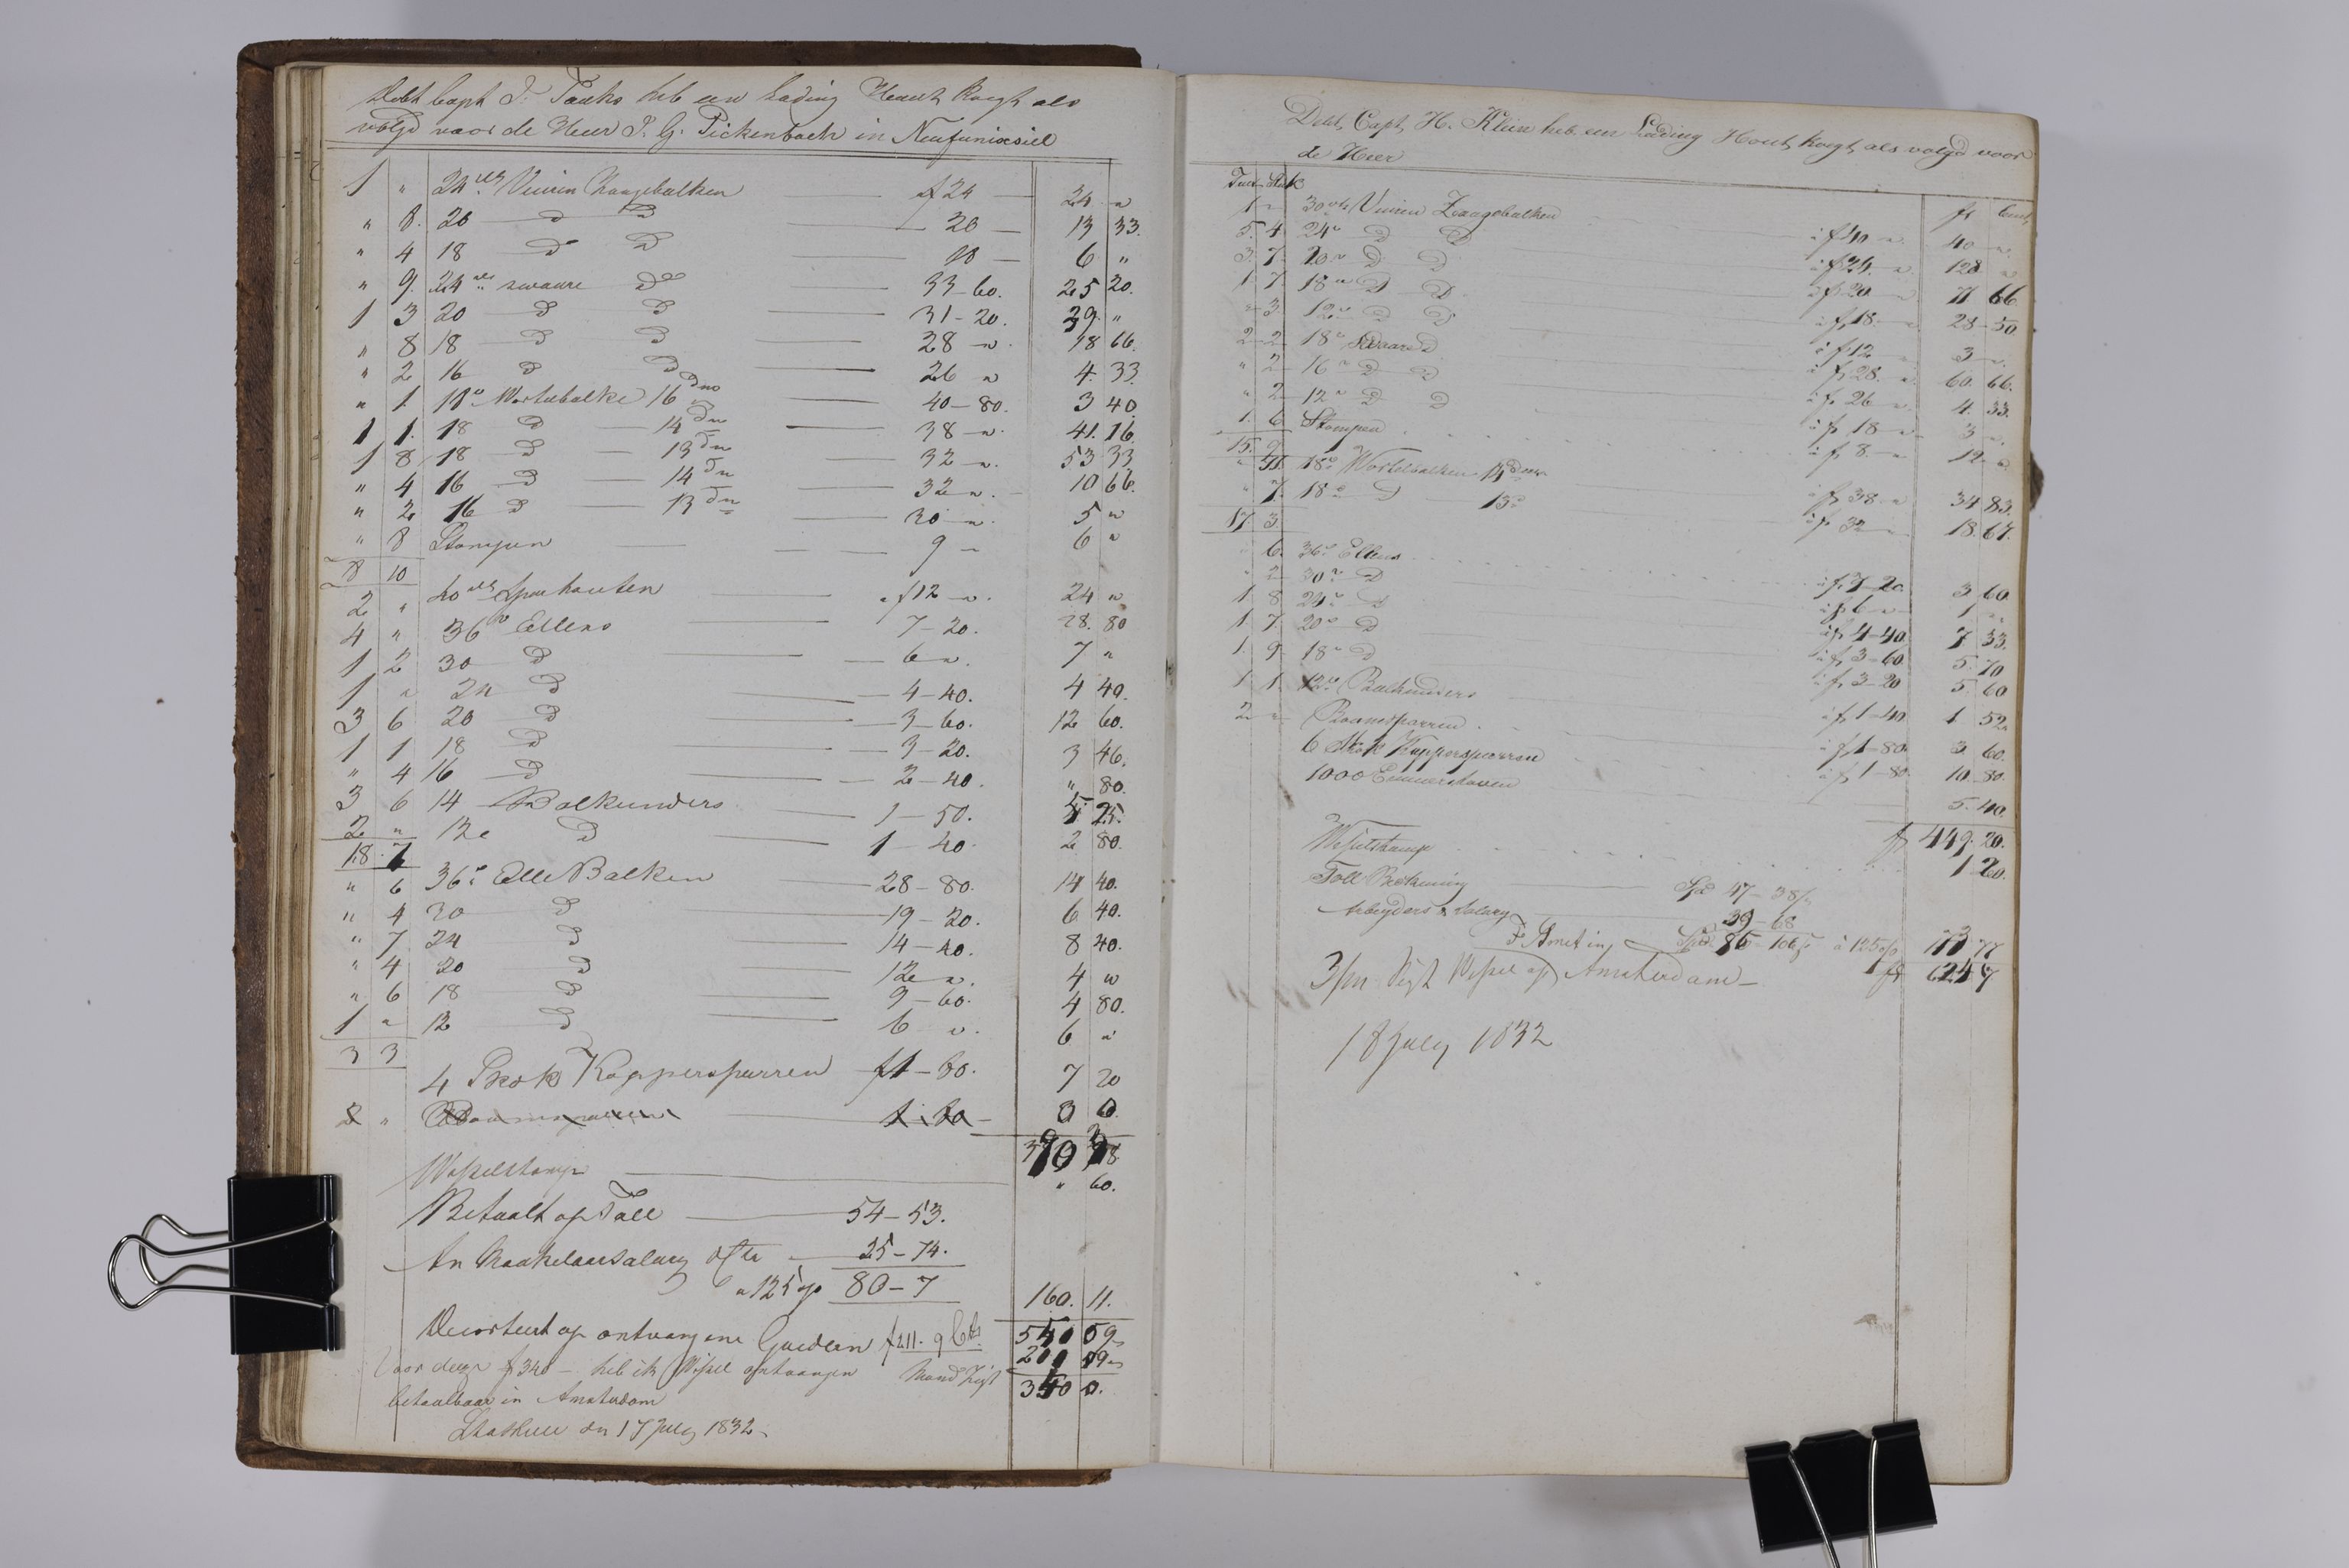 Debt Capt J. Tauks heb een Lading Houth kogt als
volgt voor de Heer P. G. Pickenbach in Neufunixsiel
1 " 24 vts Vuuren Zaagebalken f 24 24 "
" 8. 20 D D 20 13 33.
" 4 18 D D 18 6 "
" 9. 24 vts swaare D 33-60. 25 20.
1 3 20 D D 31-20. 39 "
" 8 18 D D 28 " 18 66.
" 2 16 D D 26 " 4. 33.
" 1. 18 v Wortelbalke 16 Dm 40-80. 3 40.
1 1. 18 D 14 Dm 38 " 41. 16.
1 8 18 D 13 Dm 32 " 53 33
" 4 16 D 14 Dm 32 " 10 66.
" 2 16 D 13 Dm 30 " 5 "
" 8 Stompen 9 " 6 "
8 10
2 " 40 vts Spierhouten f 12 " 24 "
4 " 36 v Ellens 7-20. 28. 80
1 2 30 D 6 " 7 "
1 " 24 D 4-40. 4 40.
3 6 20 D 3-60. 12 60.
1 1 18 D 3-20. 3 46.
" 4 16 D 2-40. " 80.
3 6 14 Balkunders 1-50. 5 25.
2 " 12 D 1-40. 2 80.
18 7
" 6 36 v Elle Balken 28-80. 14 40.
" 4 30 D 19-20. 6 40.
" 7 24 D 14-40. 8 40.
" 4 20 D 12 " 4 "
" 6 18 D 9-60. 4 80.
1 " 12 D 6 " 6 "
3 3
4 Skok Kappersparren f 1-80. 7 20
2 "
Wesselstamp " 60.
Betaalt op Toll 54-53.
An Maakelaarsalary 25-74.
a 125 80-7 160. 11.
op ontvangene Guedern f 211. 9 540 59
Voor deeze f 340 - heb ik Wissel ontvangen 340 0.
betaalbaar in Amsterdam
den 17 July 1832
Debt Capt H. Klein heb een Lading Hout kogt als volgt voor
de Heer
f Cents
1 " 30 vts Vuuren Zaagebalken à f 40 " 40 "
5. 4. 24 v D D à f 24 " 128 "
3. 7. 20 v D D à f 20 " 71 66
1. 7. 18 v D D à f 18 " 28-50.
" 3. 12 v D D à f 12 " 3 "
2 2 18 v Swaare D à f 28 " 60. 66.
" 2 16 v D D à f 26 " 4. 33.
" 2 12 v D D à f 18 " 3 "
1. 6. Stompen à f 8. " 12 "
15. 9
" 11. 18 v Wortelbalken 14 Dm à f 38 " 34 83.
" 7. 18 v D 13 v à f 32 " 18. 67.
17 3.
" 6. 36 v Ellens à f 7-20 3 60
" 2 30 v D à f 6 " 1 "
1 8 24 v D à f 4-40 7 33.
1. 7. 20 v D à f 3-60 5. 70
1. 9. 18 v D à f 3-20 5. 60
1 1. 12 v Balkunders à f 1-40 1 52
2 " Boomsparren à f 1-80 3. 60.
6 Skok Kappersparren à f 1-80 10-80.
1000 5. 40.
f 449. 20.
Wesselstamp 1 20.
Toll Rekning 47-38
Arbeyders & Salary 39-68
à 125
3/m Zigt Wissel op Amsterdam
18 July 1832